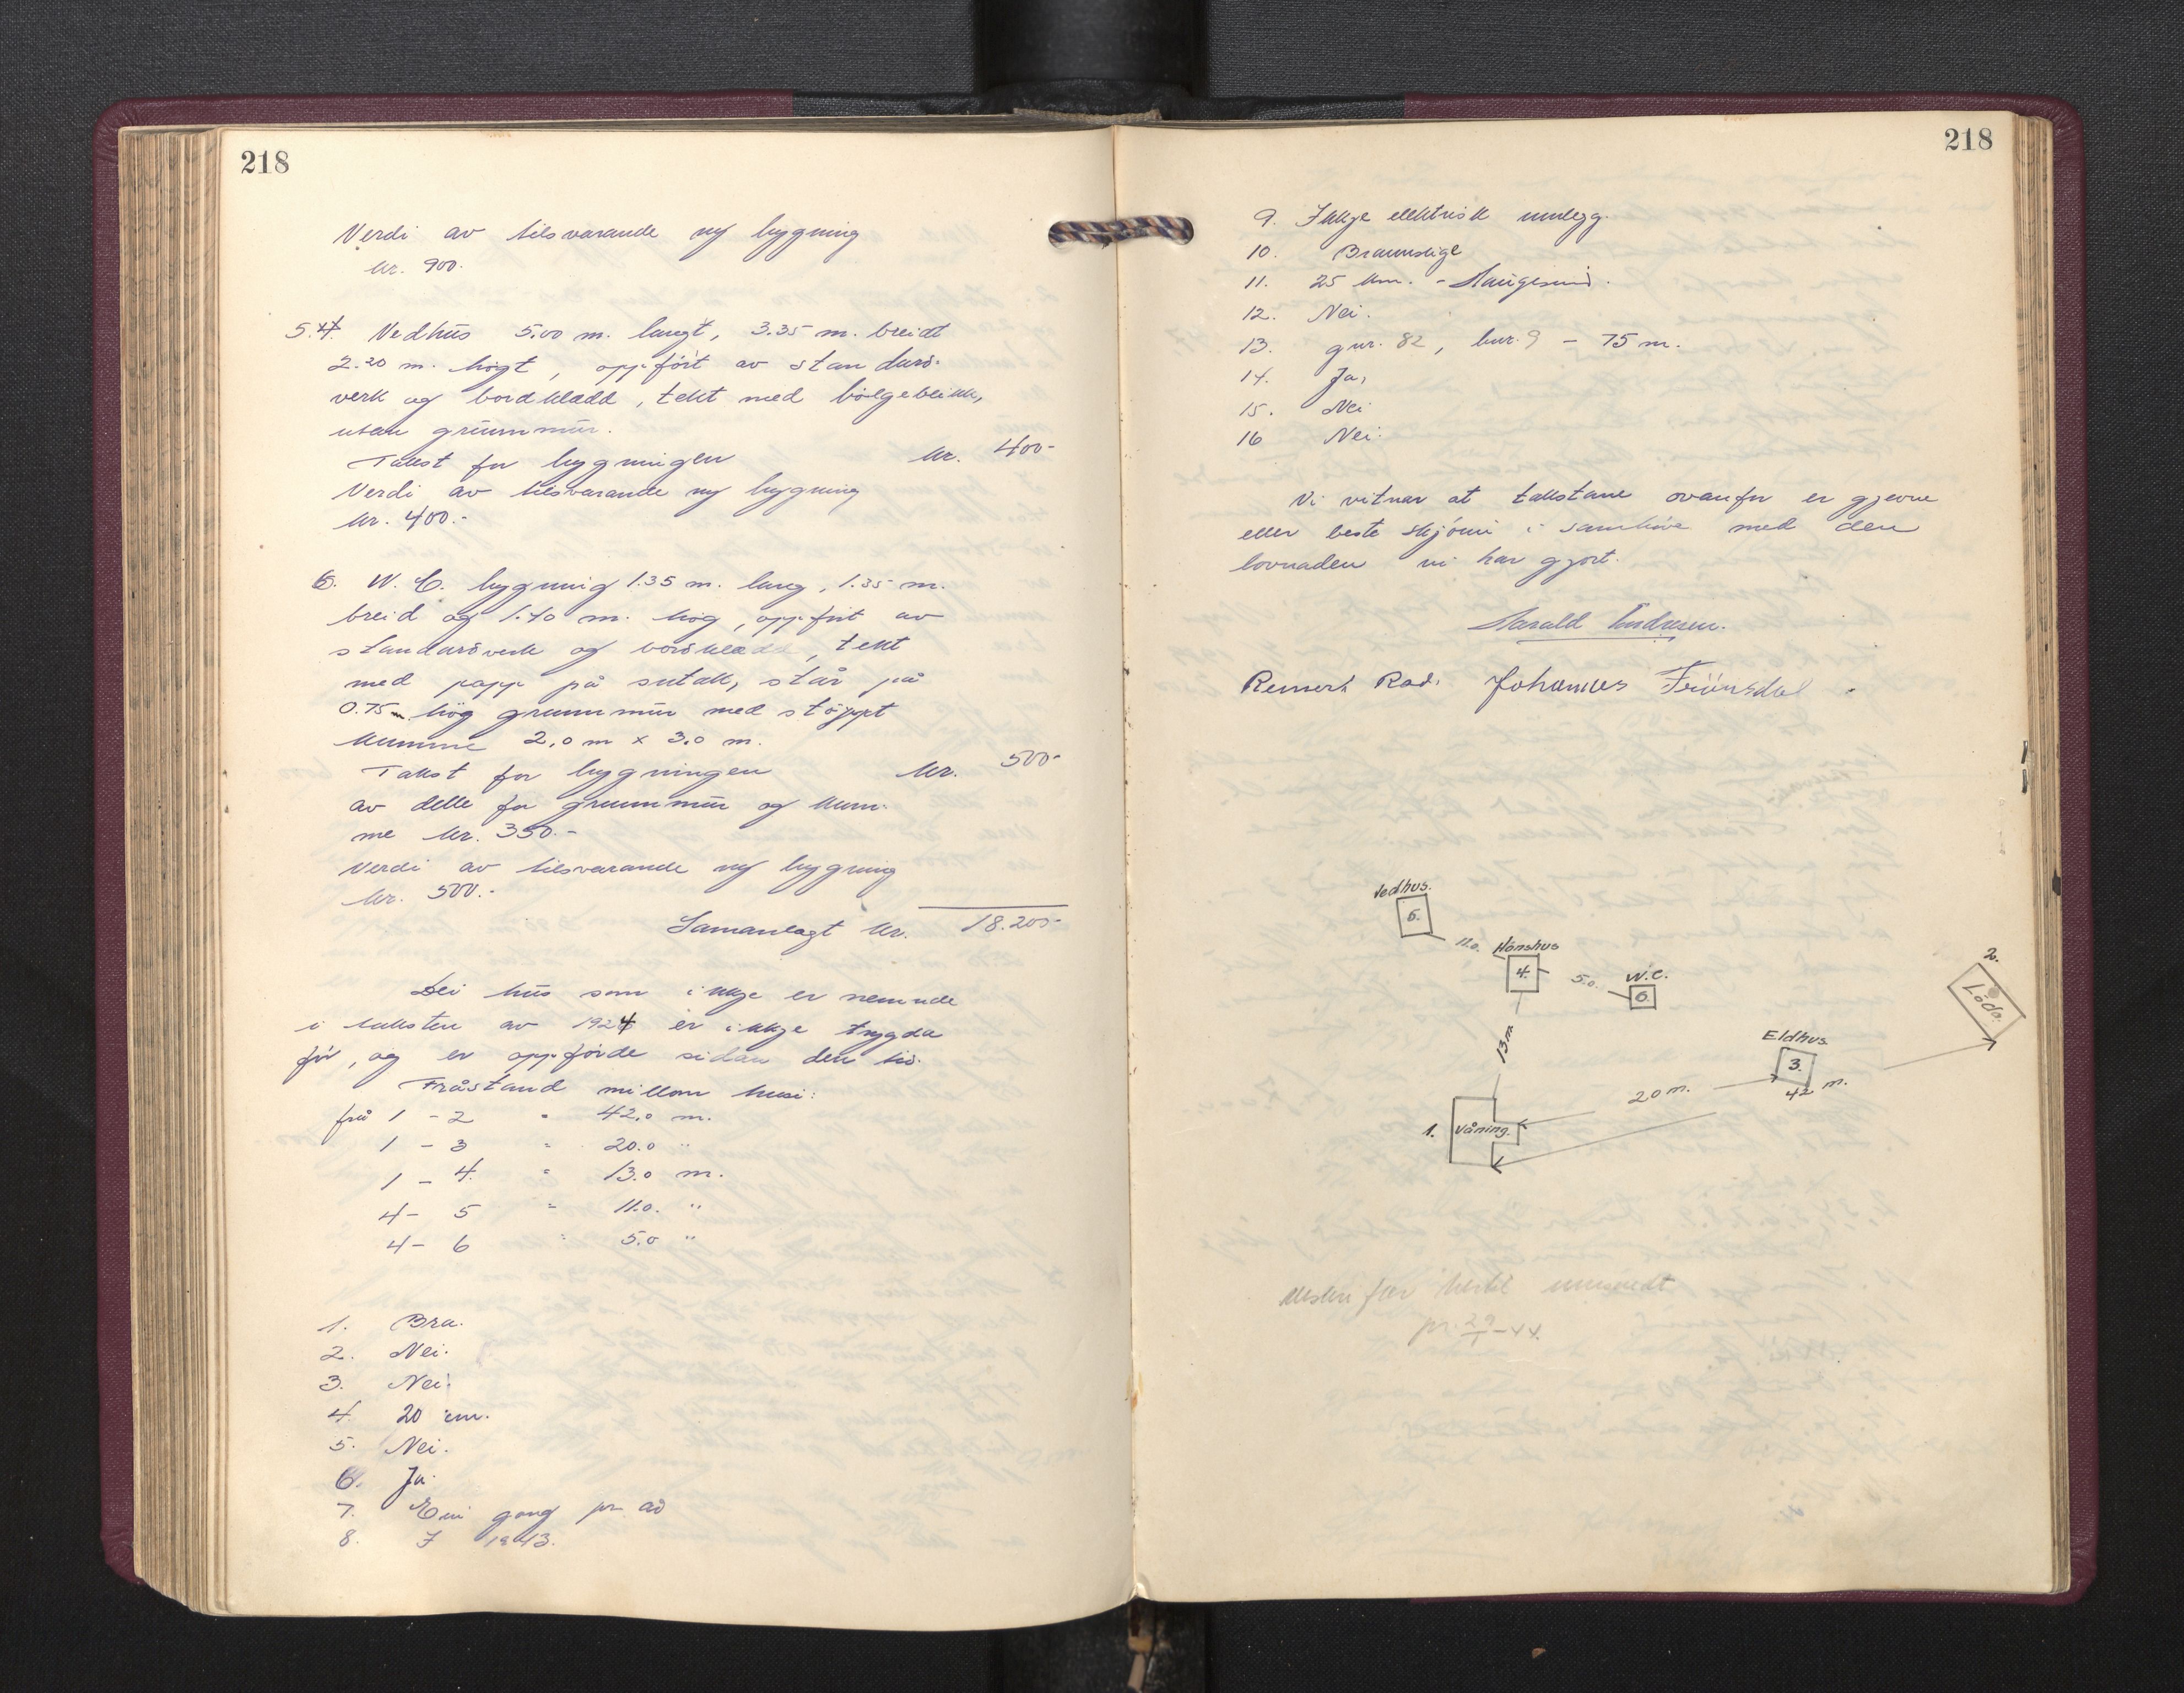 218
Verdi av tilsvarande ny bygning
kr. 900.
5. Vedhus 5.00 m. langt, 3.35 m. breidt
2.20 m. högt, oppfört av standard-
verk og bordkledd, tekt med bölgeblikk,
utan grunnmur.
Takst for bygningen kr. 400-
Verdi av tilsvarande ny bygning
kr. 400.-
6. W.C. bygning 1.35 m. lang, 1.35 m.
breid og 1.70 m. hög, oppfört av
standardverk og bordkledd, tekt
med papp på sutak, står på
0.75 m hög grunnmur med stöypt
kumme 2.0 m x 3.0 m.
Takst for bygningen kr. 500-
av dette for grunnmur og kum-
me kr. 350.-
Verdi av tilsvarande ny bygning
kr. 500.-
Samanlagt kr. 18.200-
Dei hus som ikkje er nemnde
i taksten av 1924 er ikkje trygda
för, og er oppförde sidan den tid.
Fråstand millom husi:
frå 1 - 2 = 42,0 m.
1 - 3 = 20.0 "
1 - 4 = 13.0 m.
4 - 5 = 11.0. "
4 - 6 = 5.0 "
1. Bra.
2. Nei.
3. Nei.
4. 20 cm.
5. Nei.
6. Ja.
7. Ein gong pr. år
8. I 1943.
218
9. Ikkje elektrisk innlegg.
10. Braunslige
11. 25 km. - Haugesund.
12. Nei.
13. gnr. 82, bnr. 9 - 75 m.
14. Ja,
15. Nei
16 Nei.
Vi vitnar at takstane ovanfor er gjevne
etter beste skjönn i samhöve med den
lovnaden vi har gjort.
Harald Endresen.
Reinert Rad. Johannes Frönsdal.
Vedhus.
5.
11.0. Hönshus
4. 5.0. W.C.
6.
2.
Löda.
13 m
Eldhus.
3.
20 m. 42 m.
1. Våning.
pr. 29/1-44.